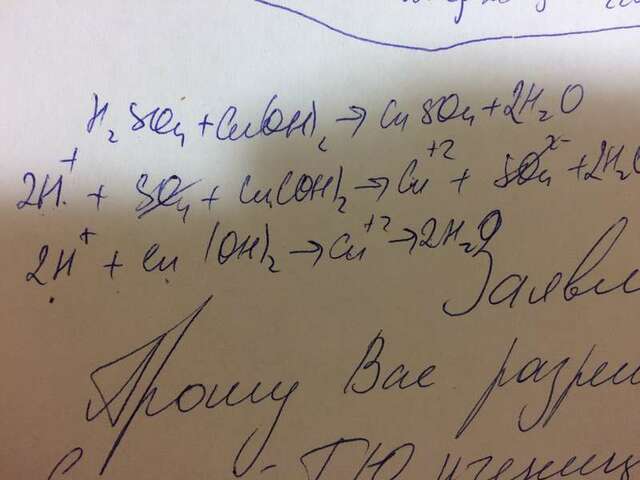 H₂SO₄ + Cu(OH)₂ → CuSO₄ + 2H₂O
2H⁺ + SO₄ + Cu(OH)₂ → Cu⁺² + SO₄²⁻ + 2H₂O
2H⁺ + Cu(OH)₂ → Cu⁺² → 2H₂O
Заявл
Прошу Вас разреш